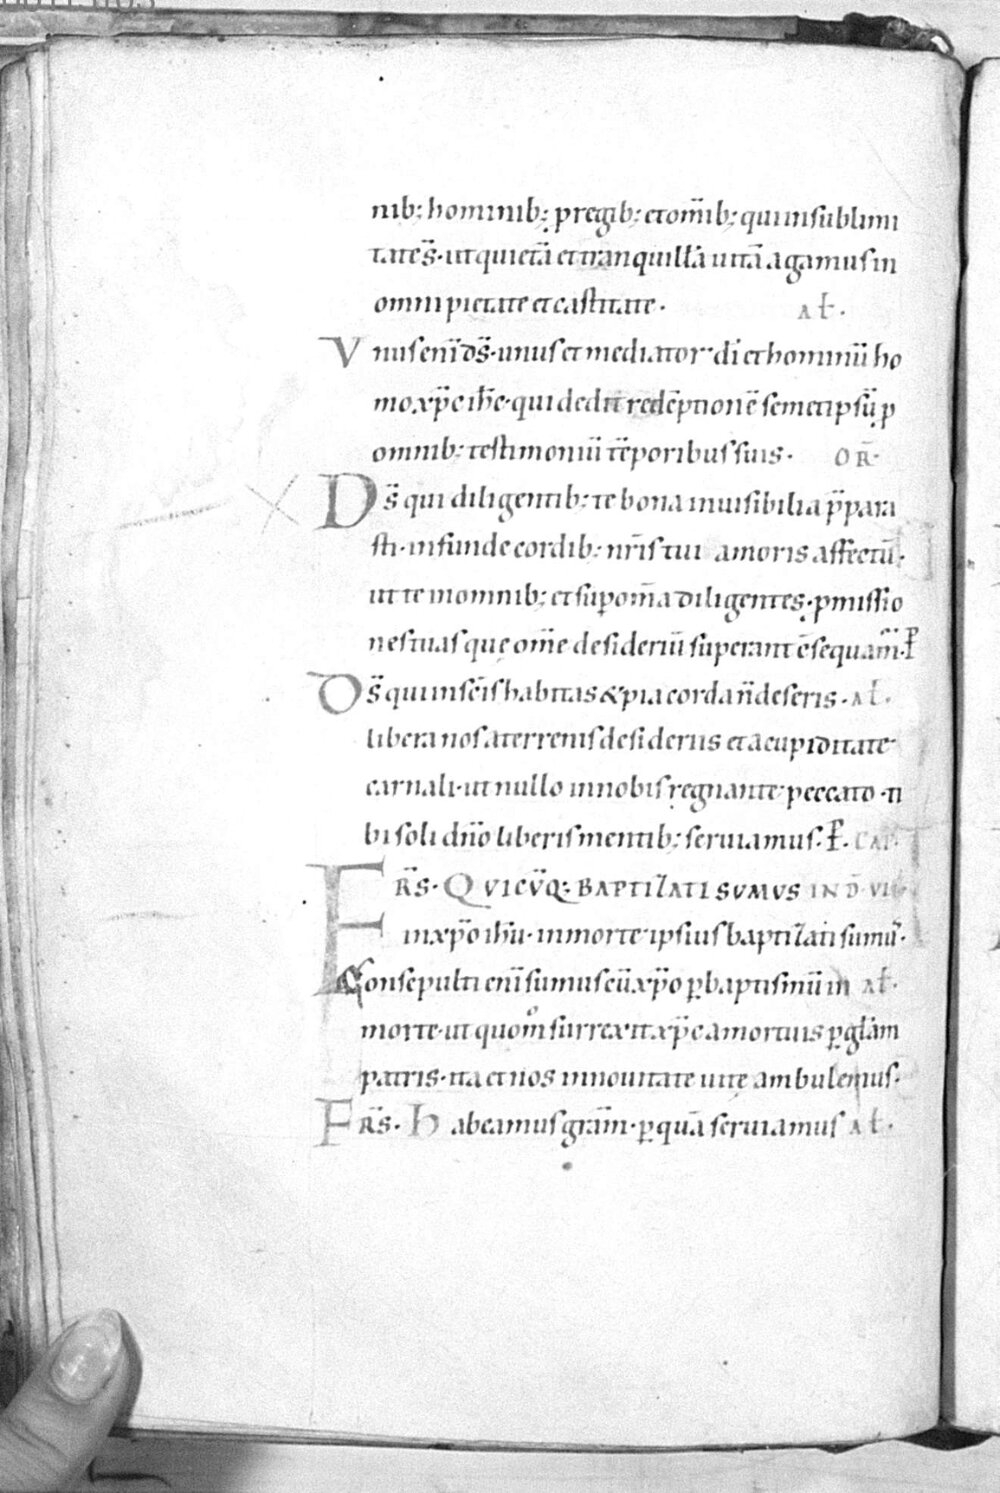 nib; hominib; p regib; et om̄ib; qui in sublimi
tate s̄· ut quietā et tranquillā uitā agamus in
omni pietate et castitate· AL̄·
Vnus enī ds̄· unus et mediator di et hominū ho
mo xp̄c ih̄c· qui dedit redēptionē semetipsū p
omnib; testimoniū tēporibus suis· OR̄·
Ds̄ qui diligentib; te bona inuisibilia p̄para
sti· infunde cordib; nr̄is tui amoris affectū·
ut te in omnib; et sup om̄a diligentes· pmissio
nes tuas quę om̄e desideriū superant c̄sequam̄·
Ds̄ qui in sc̄is habitas & pia corda n̄ deseris· AL̄·
libera nos a terrenis desideriis et a cupiditate
carnali· ut nullo in nobis regnante peccato· ti
bi soli dn̄o liberis mentib; seruiamus· CAP·
FR̄S· QUICŪQ; BAPTIZATI SUMUS IN D̄ VII
in xp̄o ih̄u· in morte ipsius baptizati sumus̄·
Consepulti enī sumus cū xp̄o p baptismū in AL̄·
morte· ut quom̊ surrexit xp̄c a mortuis p gl̄am
patris· ita et nos in nouitate uitę ambulemus·
FR̄S· Habeamus gr̄am· p quā seruiamus AL̄·